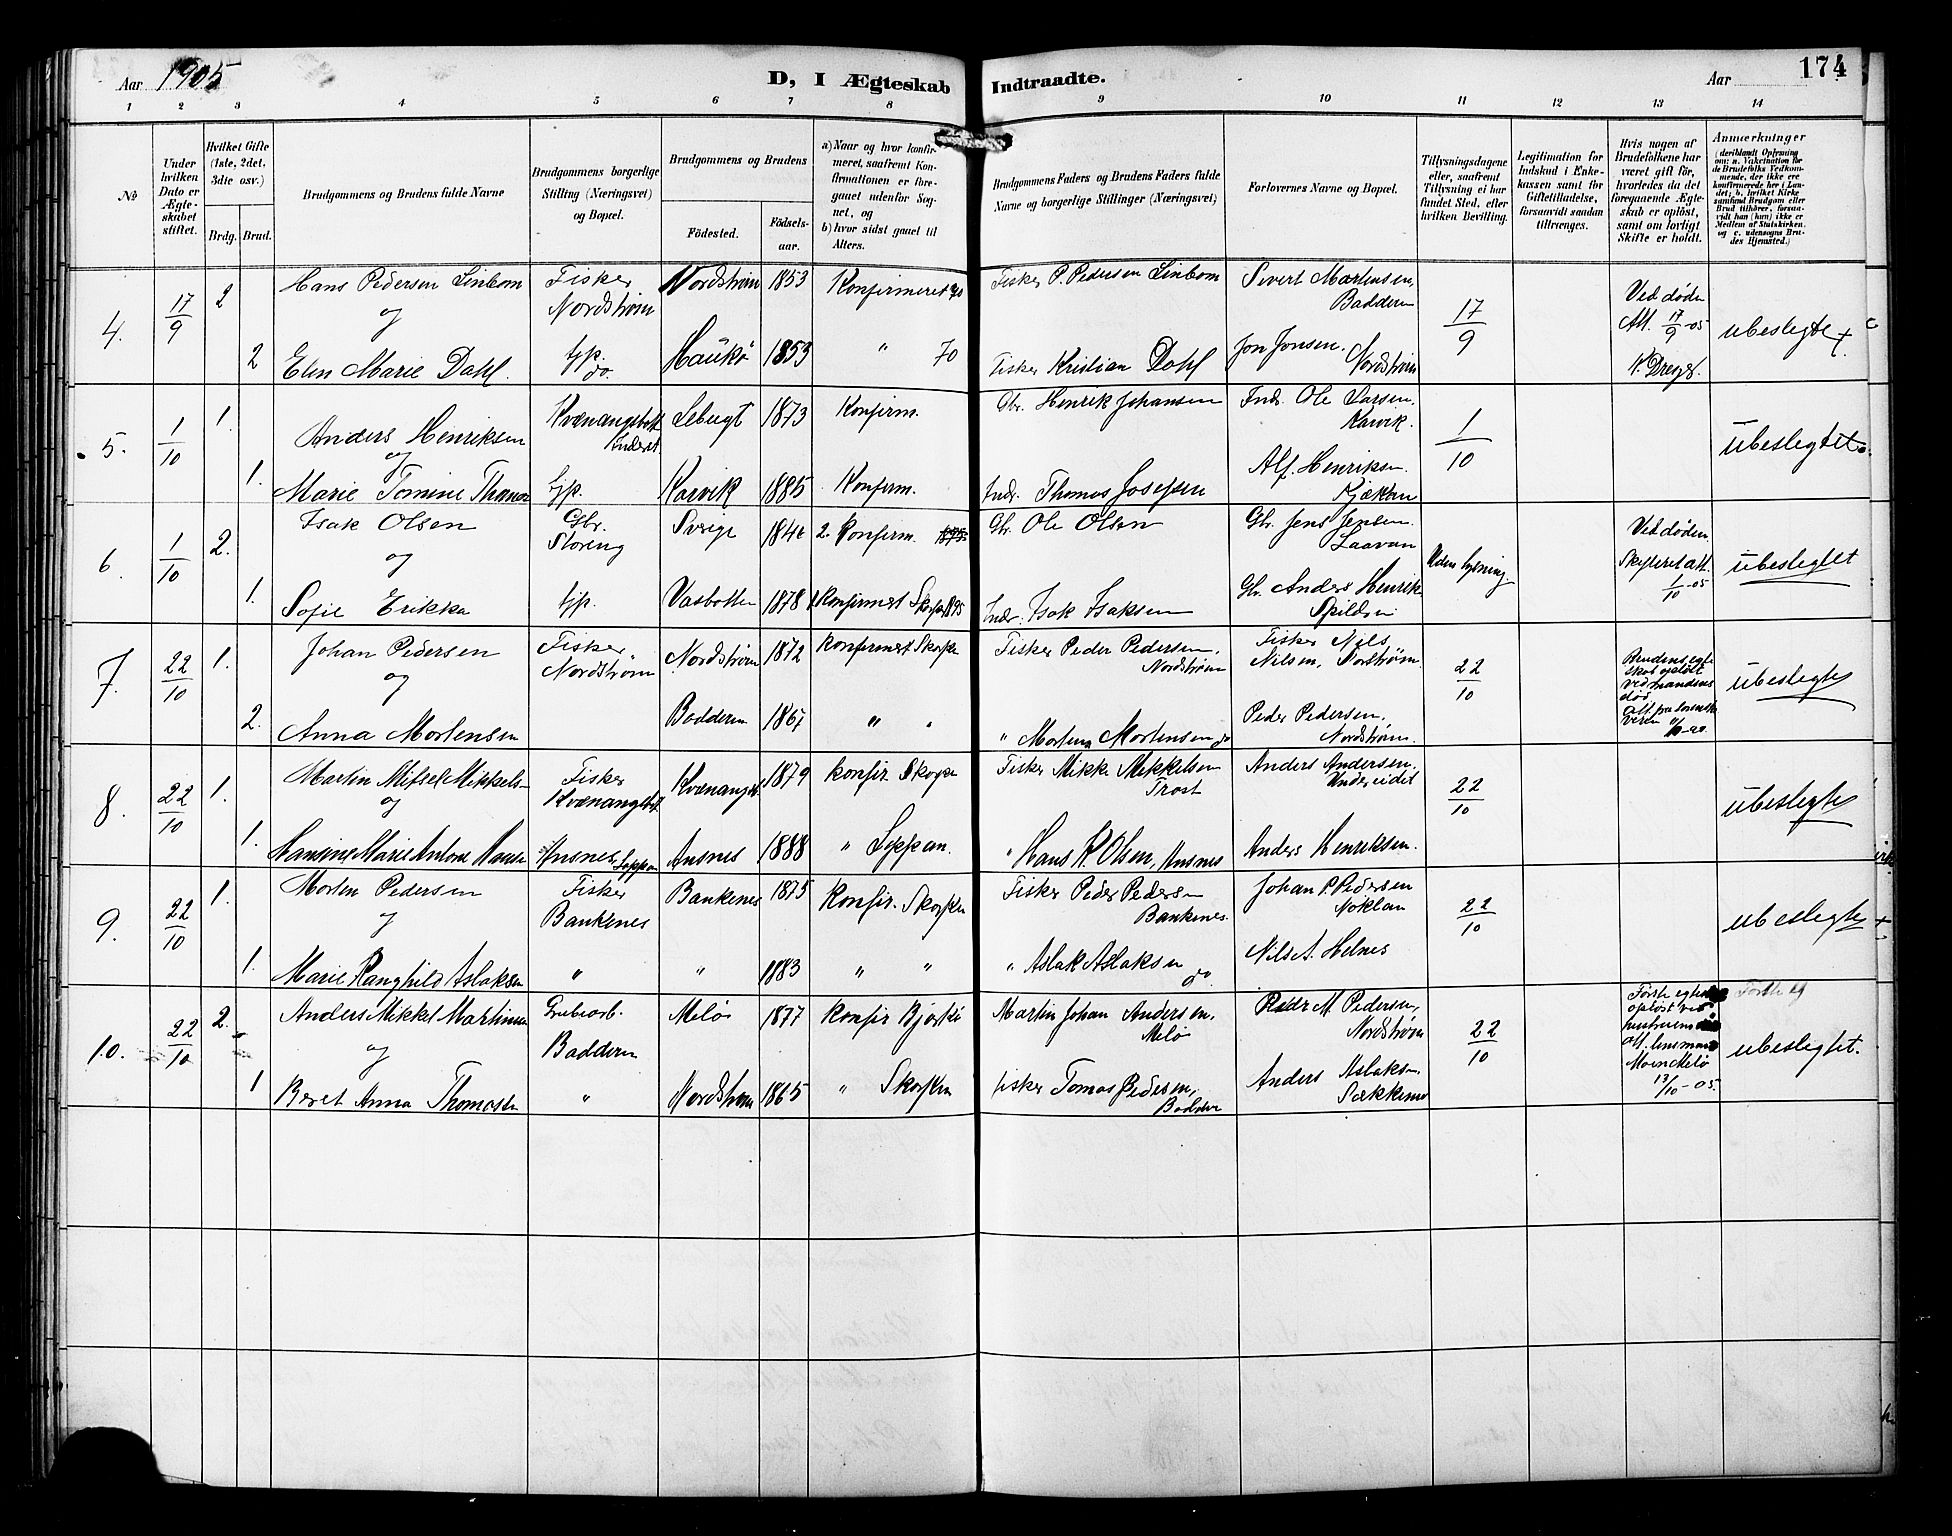 Aar 1905
D, I Ægteskab Indtraadte.
Aar
174
1 2 3 4 5 6 7 8 9 10 11 12 13 14
No
Under hvilken Dato er Ægteskabet stiftet.
Hvilket Gifte (1ste, 2det, 3die osv.)
Brdg. Brud.
Brudgommens og Brudens fulde Navne
Brudgommens borgerlige Stilling (Næringsvei) og Bopæl.
Brudgommens og Brudens
Fødested.
Fødselsaar.
a) Naar og hvor konfirmeret, saafremt Konfirmationen er foregaaet udenfor Sognet, og
b) hvor sidst gaaet til Alters.
Brudgommens Faders og Brudens Faders fulde Navne og borgerlige Stillinger (Næringsvei)
Forlovernes Navne og Bopæl.
Tillysningsdagene eller, saafremt Tillysning ei har fundet Sted, efter hvilken Bevilling.
Legitimation for Indskud i Enkekassen samt for Giftetilladelse, forsaavidt saadan tiltrænges.
Hvis nogen af Brudefolkene har været gift før, hvorledes da det foregaaende Ægteskab er opløst, samt om lovligt Skifte er holdt.
Anmerkninger (deriblandt Opførsel om: a. Vakcination for de Brudefolks Vedkommende, der ikke ere konfirmerede her i Landet; b. hvilket Kirkesamfund Brudgom eller Brud tilhører, forsaavidt han (hun) ikke er Medlem af Statskirken, og c. udensogns Brudes Hjemsted.)
4. 17/9 2 Hans Pedersen Linbom Fisker Nordstrøm Nordstrøm 1853 Konfirmeret 70 Fisker P. Pedersen Linbom Sivert Martensen, Badderen 17/9 Ved døden Att. 17/9-05 ubeslegtet
og
2 Elen Marie Dahl. Gjp. do. Haukø 1853 " 70 Fisker Kristian Dahl Jon Jonsen, Nordstrøm
5. 1/10 1. Anders Henriksen Kvænangsbott Inderst Lebugt 1873 Konfirm. Gbr. Henrik Johansen Indr. Ole Larsen, Karvik. 1/10 Ubeslegtet.
og
1. Marie Tomine Gjp. Karvik 1885 Konfirm. Indr. Thomas Josefsen Alf. Henriksen. Kjækan
6. 1/10 2. Isak Olsen Gbr. Storeng 2. Konfirm. Gbr. Ole Olsen Gbr. Jens Jensen. Laavan Uden lysning. Ved døden 1/10-05 ubeslegtet
og
1. Sofie Erikka Gjp. Vasbotten 1878 Konfirmert Indr. Isak Isaksen Gbr. Anders Henrik
7. 22/10 1. Johan Pedersen Fisker, Nordstrøm Nordstrøm 1872 Konfirmert Fisker Peder Pedersen, Nordstrøm Fisker Nils Nilsen, 22/10 Brudens egteskab opløst ved mandens død ubeslegtet
og
2. Anna Mortensen Badderen 1867 " " " Morten Mortensen do Peder Pedersen, Nordstrøm.
8. 22/10 1. Martin Mikkels- Fisker Kvænangsb. Kvænangsb. 1879 Konfir Fisker Mikkel Mikkelsen Anders Andersen, 22/10 ubeslegtet
og
1. Hansine Marie Antone Hansen Ansnes Loppen Ansnes 1888 " Loppen. " Hans P. Olsen, Ansnes Anders Henriksen.
9. 22/10 1. Morten Pedersen Fisker Bankenes Bankenes 1875 Konfir. Fisker Peder Pedersen Bankenes. Johan P. Pedersen Noklan 22/10 ubeslegtet
og
1. Marie Ranghild Aslaksen " " 1883 " " " Aslak Aslaksen do Nils A. Helnes
10. 22/10 2. Anders Mikkel Martinsen Grubearb. Badderen Melø 1877 Konfir Martin Johan Andersen, Melø Peder M. Pedersen, Nordstrøm 22/10 Første egteskab opløst ved hustruens 13/10-05. Første eg ubeslegtet.
og
1 Beret Anna " Nordstrøm 1865 " Fisker Tomas Pedersen, Badderen Anders Aslaksen